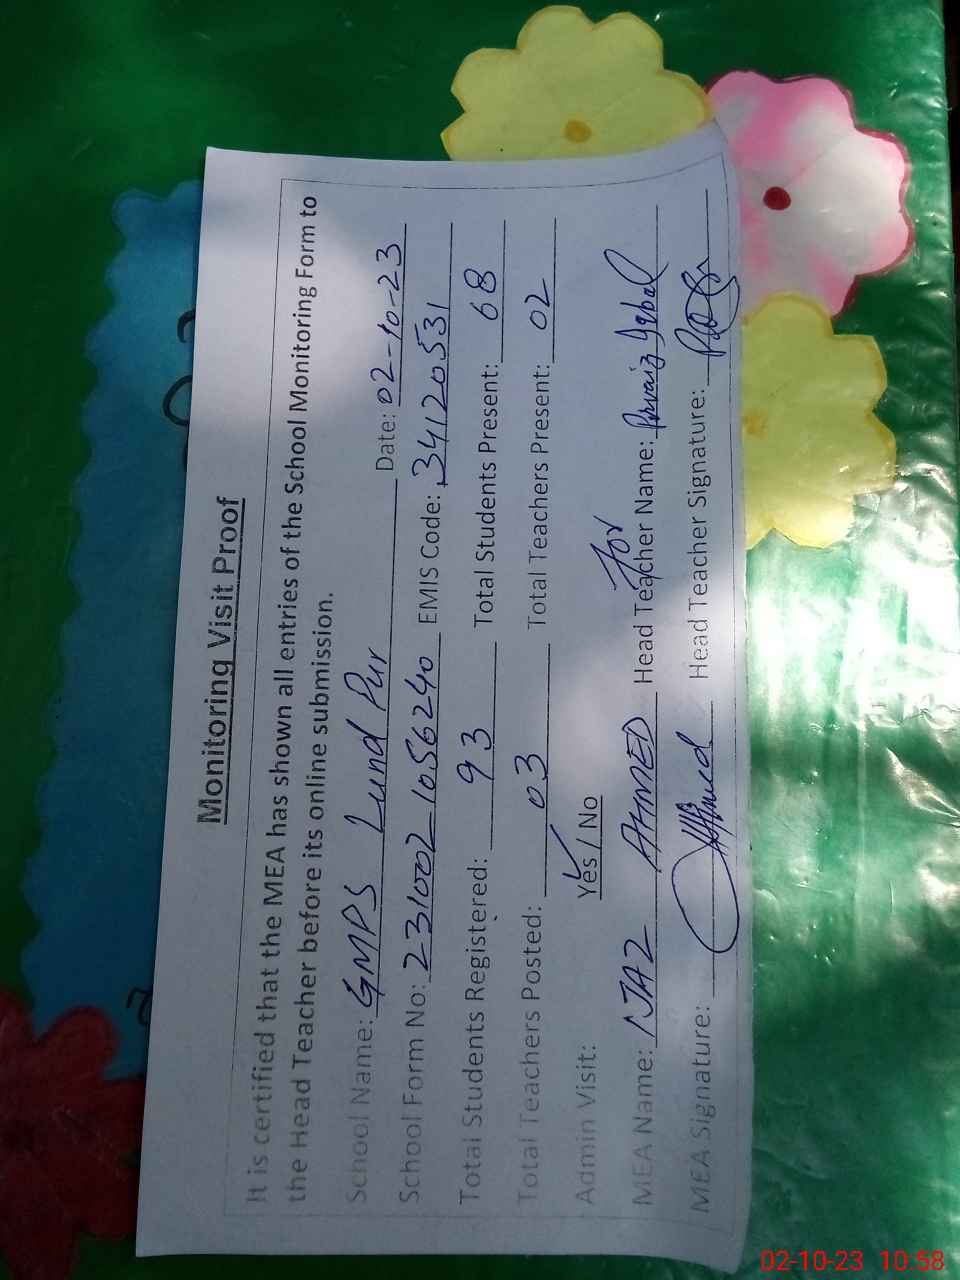 Monitoring Visit Proof
It is certified that the MEA has shown all entries of the School Monitoring Form to
the Head Teacher before its online submission.
School Name: GMPS Lund Pur Date: 02-10-23
School Form No: 231002_1056240 EMIS Code: 34120531
Total Students Registered: 93 Total Students Present: 68
Total Teachers Posted: 03 Total Teachers Present: 02
Admin Visit: Yes / No
For
MEA Name: NJAZ AHMED Head Teacher Name: Pervaiz Iqbal
MEA Signature: Head Teacher Signature:
02-10-23 10:58